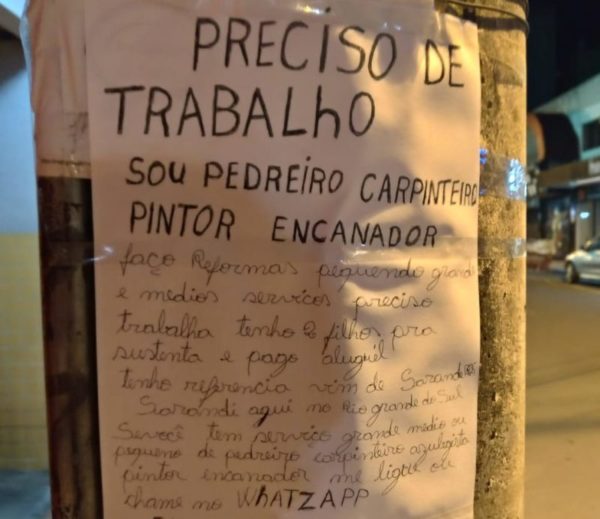 PRECISO DE
TRABALhO
SOU PEDREIRO CARPINTEIRO
PINTOR ENCANADOR
faço Reformas pequendo grand
e medios servicos preciso
trabalha tenho 2 filhos pra
sustenta e pago aluguél
tenho referencia vim de Sarandi
Sarandi aqui no Rio grande do Sul
Sevocê tem serviço grande médio ou
pequeno de pedreiro carpinteiro azulegista
pintor encanador me ligue ou
chame no WhATZAPP